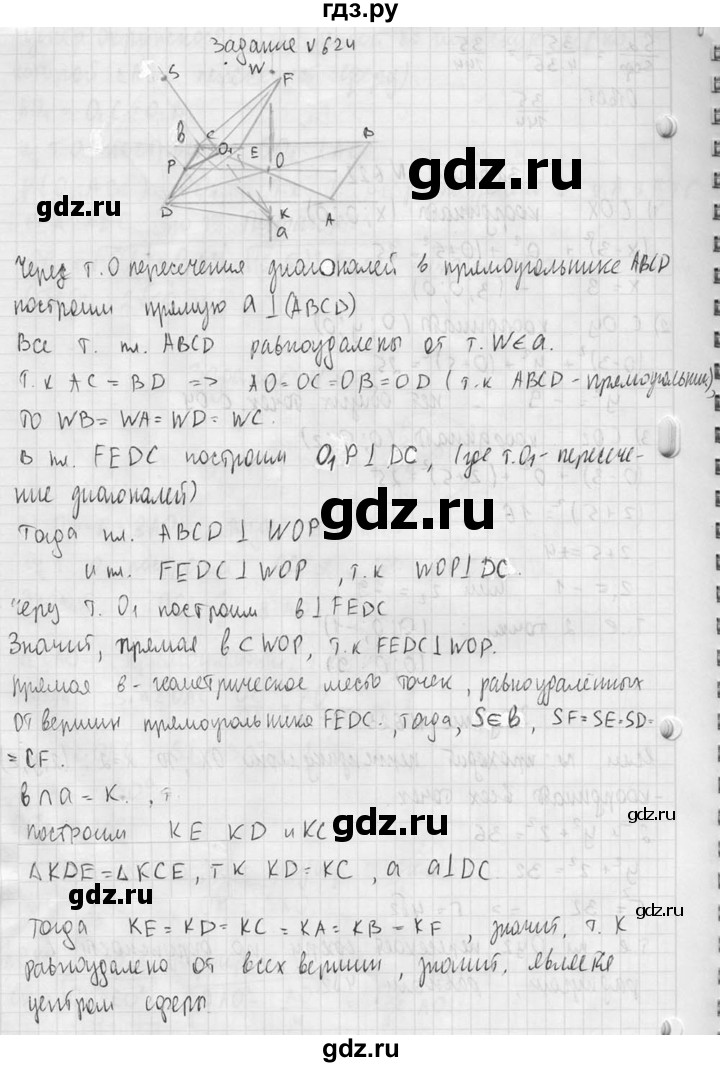 гдз.ру
Задание №624
S W F
B C O₁ E O B
P
D K A
a
gdz.ru
Через т. О пересечения диагоналей в прямоугольнике ABCD
построим прямую a⊥(ABCD)
Все т. пл. ABCD равноудалены от т. W∈a.
Т.к AC = BD => AO=OC=OB=OD (т.к ABCD-прямоугольник),
то WB=WA=WD=WC.
В пл. FEDC построим O₁P⊥DC, (где т.O₁-пересече-
ние диагоналей)
gdz.ru
Тогда пл. ABCD⊥WOP
и пл. FEDC⊥WOP, т.к WOP⊥DC.
Через т. O₁ построим в⊥FEDC
Значит, прямая в⊂WOP, т.к FEDC⊥WOP.
Прямая в-геометрическое место точек, равноудаленных
от вершин прямоугольника FEDC., тогда, S∈B, SF=SE=SD=
=CF.
в∩a=K.,т.
построим KE KD и KC
gdz.ru
gdz.ru
ΔKDE=ΔKCE, т к KD=KC, а a⊥DC
Тогда KE=KD=KC=KA=KB=KF, значит, т. К
равноудалено от всех вершин, значит, является
центром сферы.
gdz.ru
gdz.ru
gdz.ru